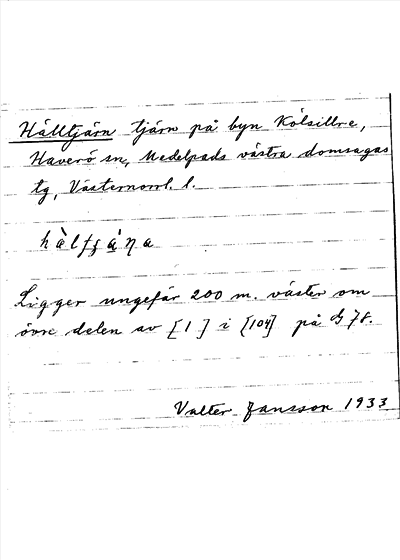 Hälltjärn tjärn på byn Kölsillre,
Haverö sn, Medelpads västra domsagas
tg, Västernorrl. l.
Ligger ungefär 200 m. väster om
övre delen av [1] i [104] på G 78.
Valter Jansson 1933